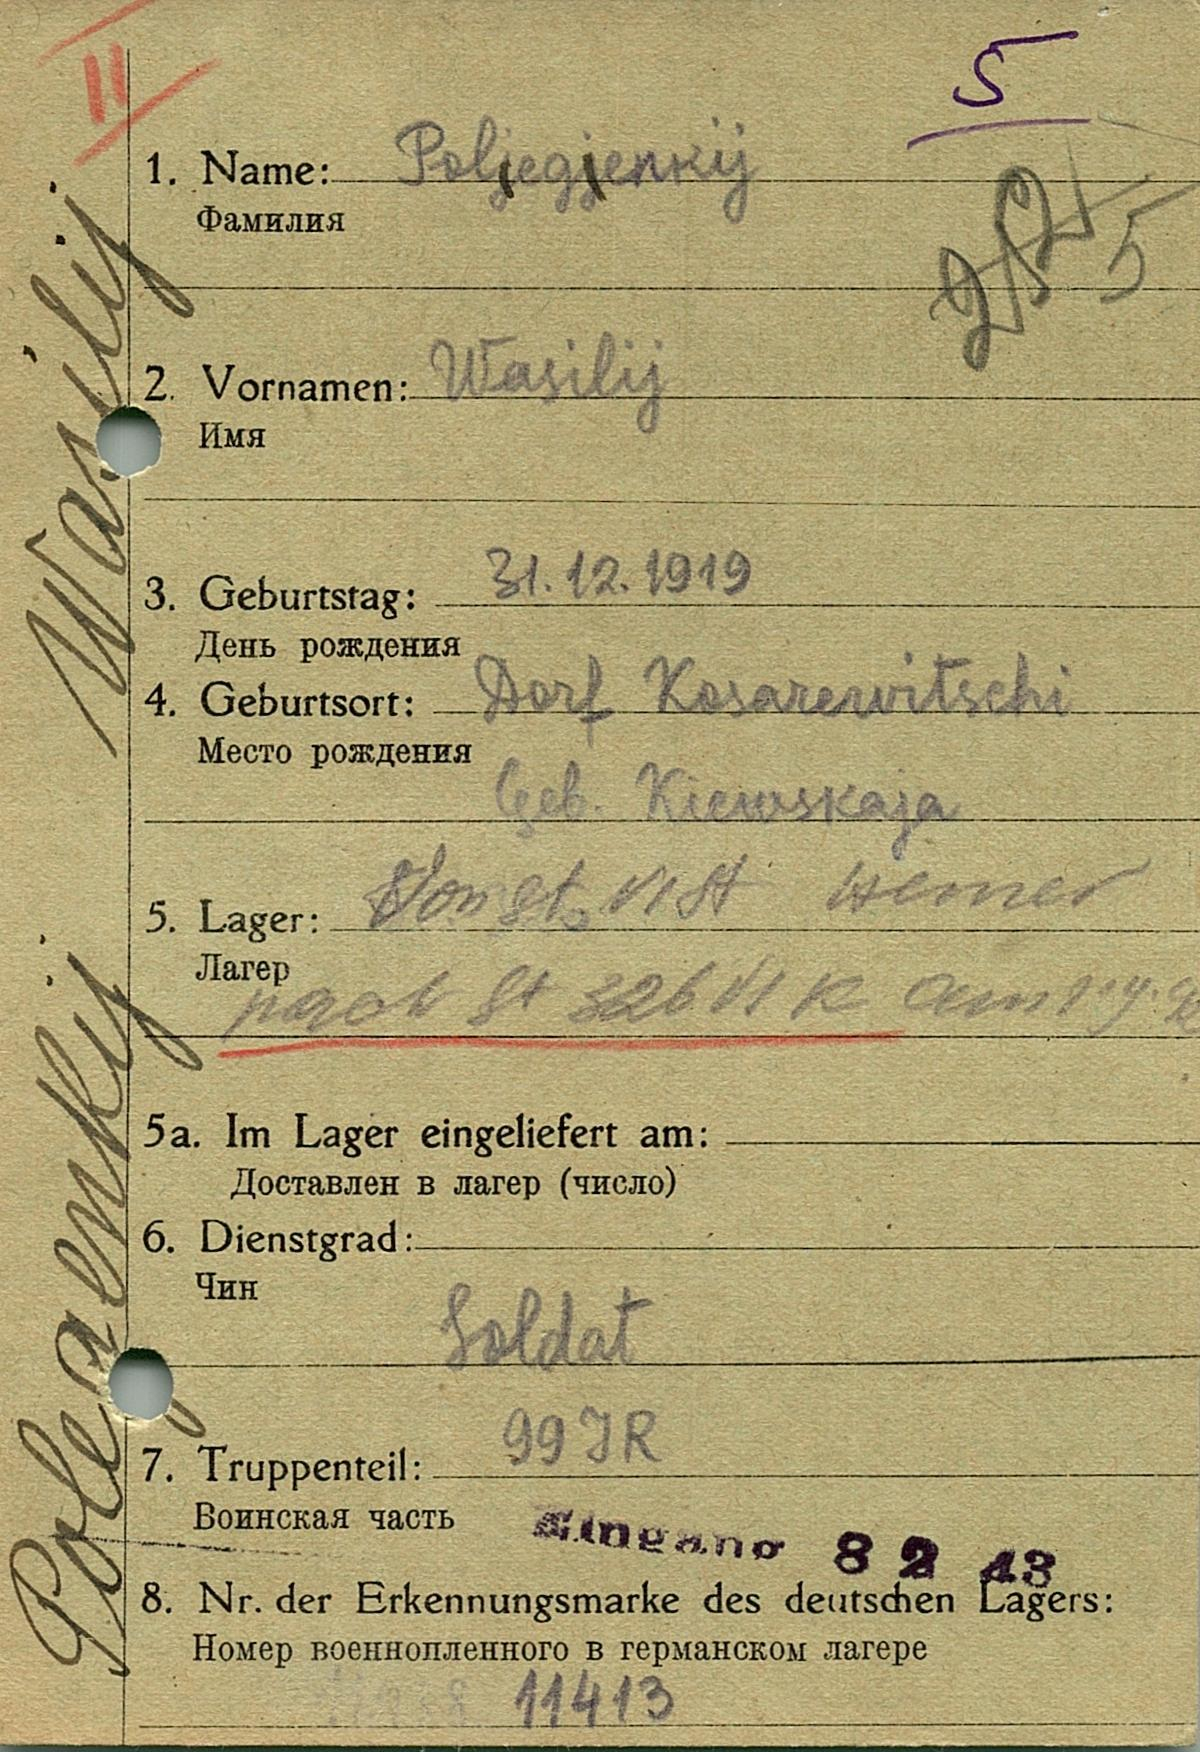 II
5
1. Name: Poljegjenkij
Фамилия
5
2. Vornamen: Wasilij
Имя
3. Geburtstag: 31.12.1919
День рождения
4. Geburtsort: Dorf Kosarewitschi
Место рождения
Geb. Kiewskaja
5. Lager: Von St. VI A Hemer
Лагер
nach St 326 VI K am
5a. Im Lager eingeliefert am:
Доставлен в лагер (число)
6. Dienstgrad:
Чин
Soldat
7. Truppenteil: 99 JR
Воинская часть
Eingang 8 2 43
8. Nr. der Erkennungsmarke des deutschen Lagers:
Номер военнопленного в германском лагере
11413
Polegaenkij Wasilij